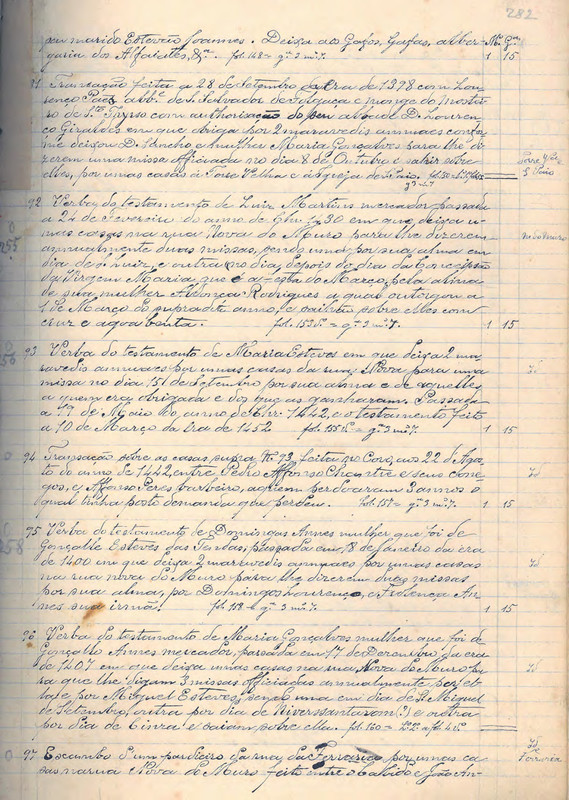 282
seu marido Estevão Joannes. Deixa aos Gafos, Gafas, alber- Nº. Gª.
garia dos Alfaiates, &ª. fol. 148 = gª 3 mº 7. 1 15
91 Transacção feita a 28 de Setembro da era de 1398 com Lou-
renço Paes abbᵉ de S. Salvador de e monge do Mostei-
ro de Sᵗᵒ Tyrso com authorisação do seu abbade D. Louren-
ço Giraldes em que obriga por 2 maravedis annuaes confor-
me deixou D. e mulher Maria Gonçalves para lhe di-
zerem uma missa officiada no dia 8 de Outubro e sahir sobre
elles, por umas casas á Torre Velha e á Igreja de S. Paio.
Torre Vª e
S. Paio
92 Verba do testamento de Luiz Martins mercador passada
a 24 de Fevereiro do anno de 1430 em que deixa u-
mas casas na rua Nova do Muro para lhe dizerem
annualmente duas missas, sendo uma por sua alma em
dia de S. Luiz, e outra no dia depois do dia da Conceição
da Virgem Maria, que é a de Março, pela alma
de sua mulher Aldonça Rodrigues a qual outorgou a
1 de Março do supradito anno, e saihão sobre elles com
cruz e agoa benta. fol. 153 = gª 3 mº 7. 1 15
N. do Muro
255
93 Verba do testamento de Maria Esteves em que deixa 2 ma-
ravedis annuaes por umas casas da rua Nova para uma
missa no dia 15 de Setembro por sua alma e de aquelles
a quem era obrigada e dos que as ganharam. Passada
a 19 de Maio do anno de 1442, e o testamento feito
a 10 de Março da era de 1452 fol. 155 = gª 3 mº 7. 1 15
Id
256
94 Transacção sobre as casas supra Nº 93 feita no Coro, aos 22 d'Agos-
to do anno de 1442, entre Pedro Affonso Chantre e seus cone-
gos, e Affonso Peres barbeiro, a quem perdoaram 3 annos o
qual tinha posto demanda que perdeu. fol. 157 = gª 3 mº 7. 1 15
Id
95 Verba do testamento de Domingas Annes mulher que foi de
Gonçalo Esteves das Tendas, passada em 18 de Janeiro da era
de 1400 em que deixa 2 maravedis annuaes por umas casas
na rua nova do Muro para lhe dizerem duas missas
por sua alma, por Domingos Lourenço, e An-
nes sua irmã. fol. 158 = gª 3 mº 7. 1 15
Id
258
96 Verba do testamento de Maria Gonçalves mulher que foi de
Gonçalo Annes mercador, passada em 17 de Dezembro da era
de 1407 em que deixa umas casas na rua Nova do Muro pa-
ra que lhe digam 3 missas officiadas annualmente por el-
la e por Miguel Esteves, sendo uma em dia de S. Miguel
de Setembro, outra por dia de (?) e outra
por dia de Cinza e saiam sobre ella. fol. 160 =
Id
97 Escambo d'um pardieiro da rua da Ferraria por umas ca-
sas na rua Nova do Muro feito entre o Cabido e João An-
Id e
Ferraria